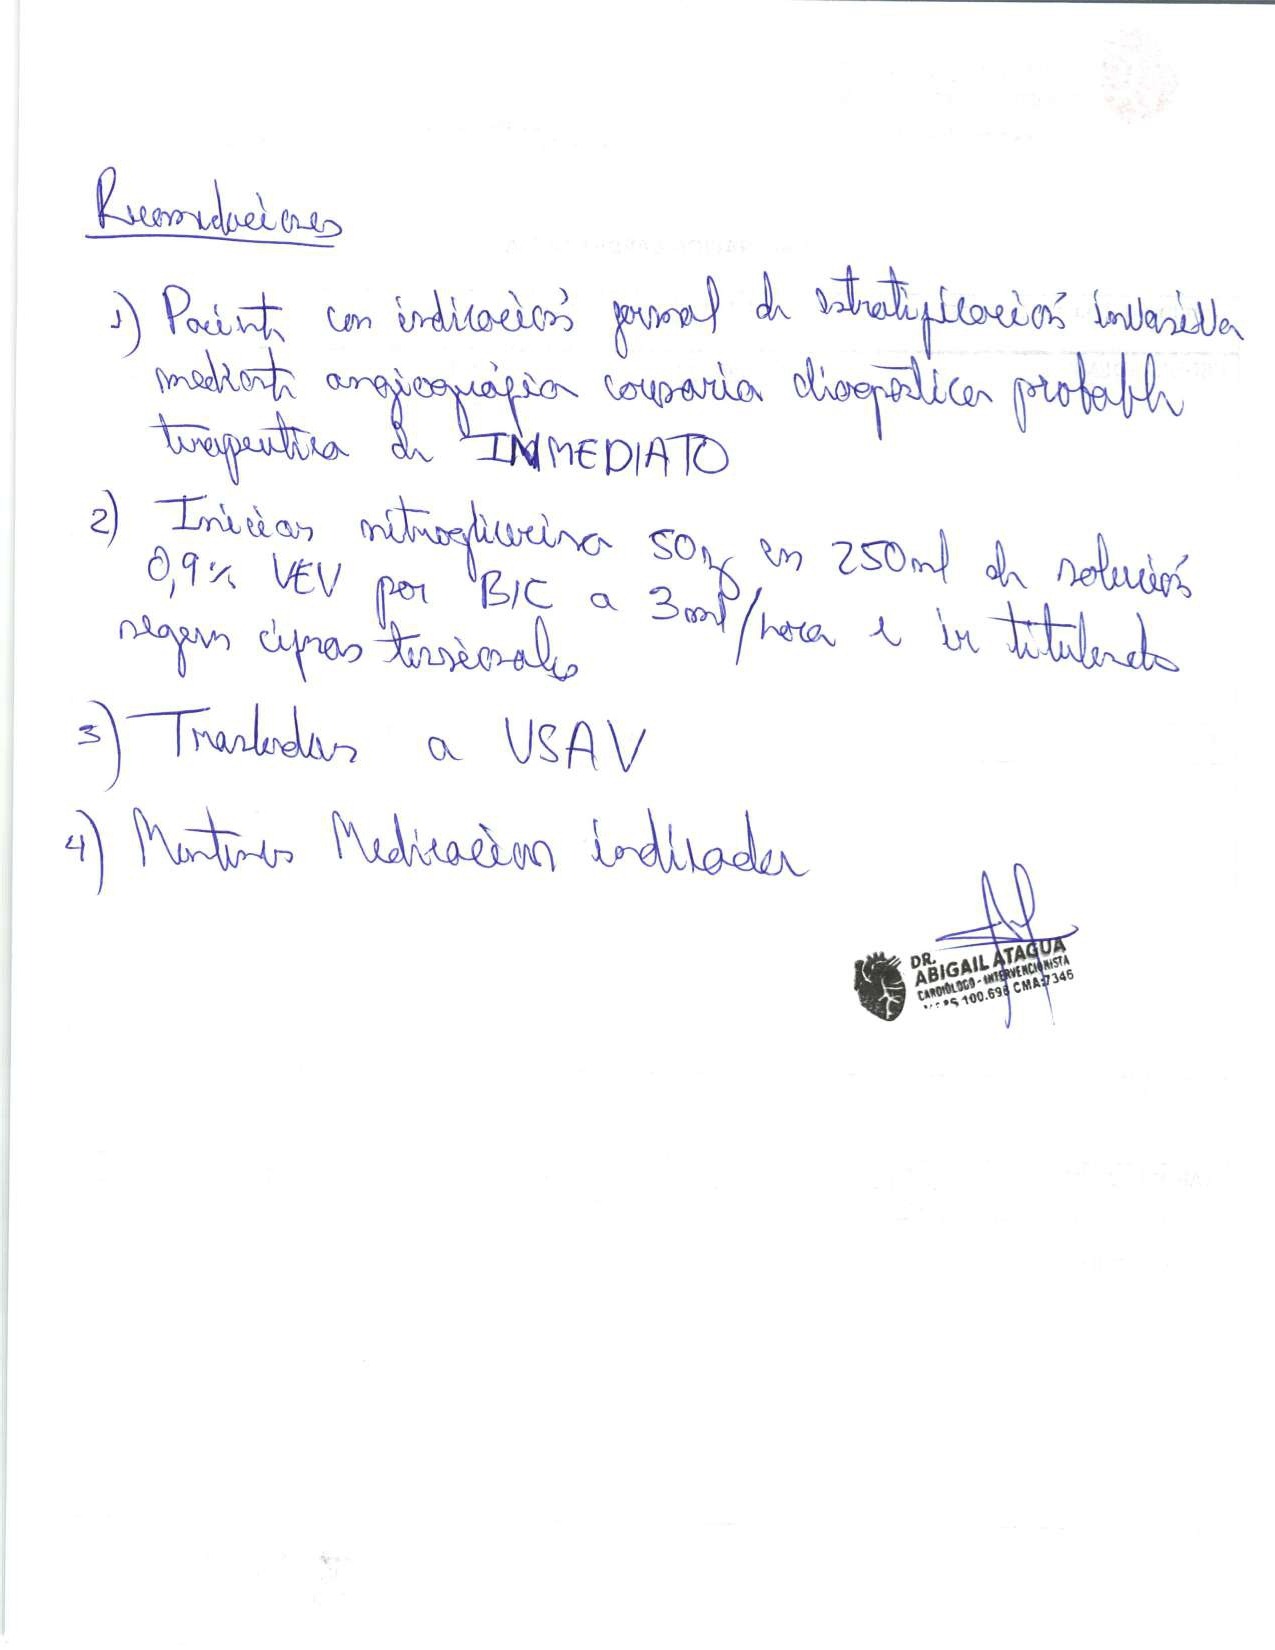 Recomendaciones
1) Paciente con indicación formal de estratificación invasiva
mediante angiografía coronaria diagnóstica probable
terapeutica de INMEDIATO
2) Iniciar nitroglicerina 50mg en 250ml de solución
0,9% VEV por BIC a 3ml/hora e ir titulando
segun cifras tensionales
3) Trasladar a USAV
4) Mantener Medicación indicada
DR.
ABIGAIL ATAGUA
CARDIÓLOGO - INTERVENCIONISTA
100.696 CMA:7346